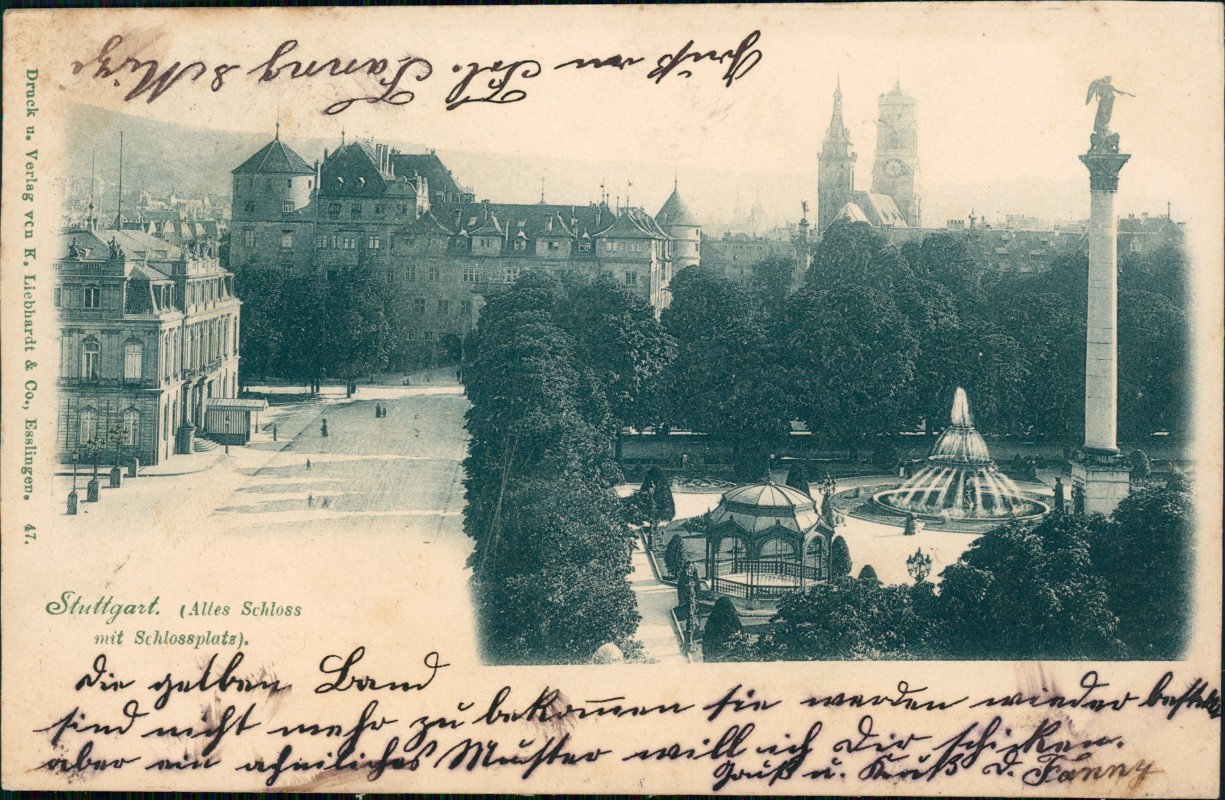 Gruß von Frl. Fanny &
Druck u. Verlag von K. Liebhardt & Co., Esslingen. 47.
Stuttgart. (Altes Schloss
mit Schlossplatz).
Die gelben Band
sind nicht mehr zu bekomen sie werden wieder bestellt
aber ein ähnliches Muster will ich Dir schicken.
Gruß u. Kuß D. Fanny